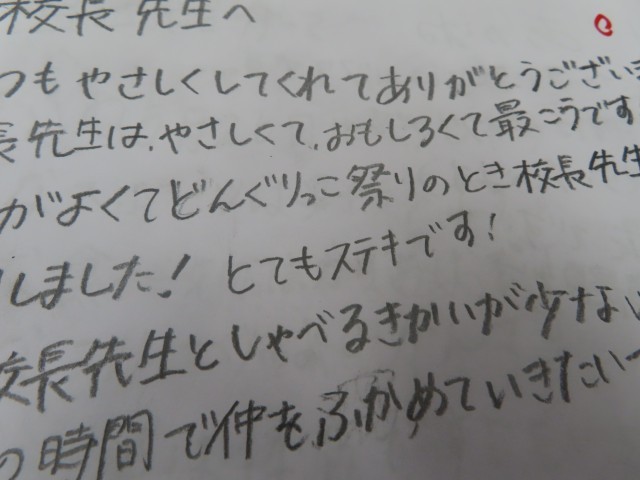 校長先生へ
つもやさしくしてくれてありがとうござい
長先生は、やさしくて、おもしろくて最こうです
がよくてどんぐりっこ祭りのとき校長先生
しました! とてもステキです!
校長先生としゃべるきかいが少ない
の時間で仲をふかめていきたい